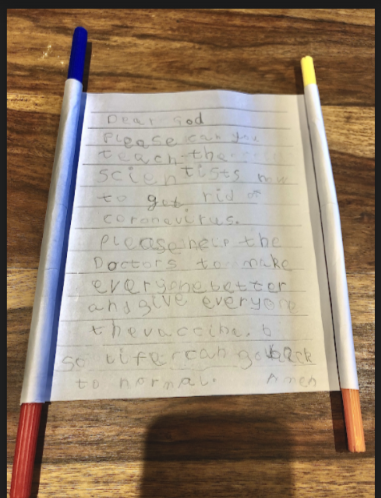 Dear God
Please can you
teach the
scientists how
to get rid of
coronavirus.
Please help the
Doctors to make
everyone better
and give everyone
the vaccine.
so life can go back
to normal. Amen